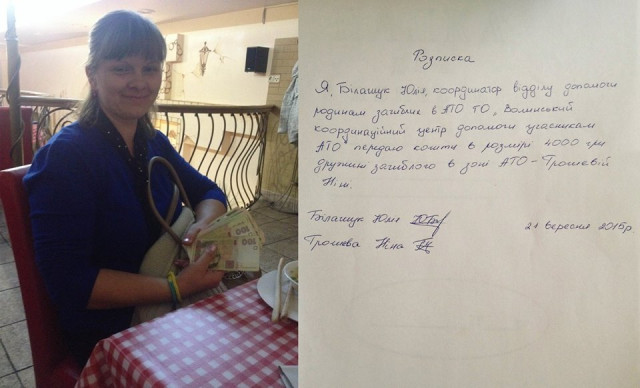 Розписка
Я, Білащук Юлія, координатор відділу допомоги
родинам загиблих в АТО ГО „Волинський
координаційний центр допомоги учасникам
АТО" передаю кошти в розмірі 4000 грн
дружині загиблого в зоні АТО – Трошевій
Ніні.
Білащук Юлія
21 вересня 2015р.
Трошева Ніна